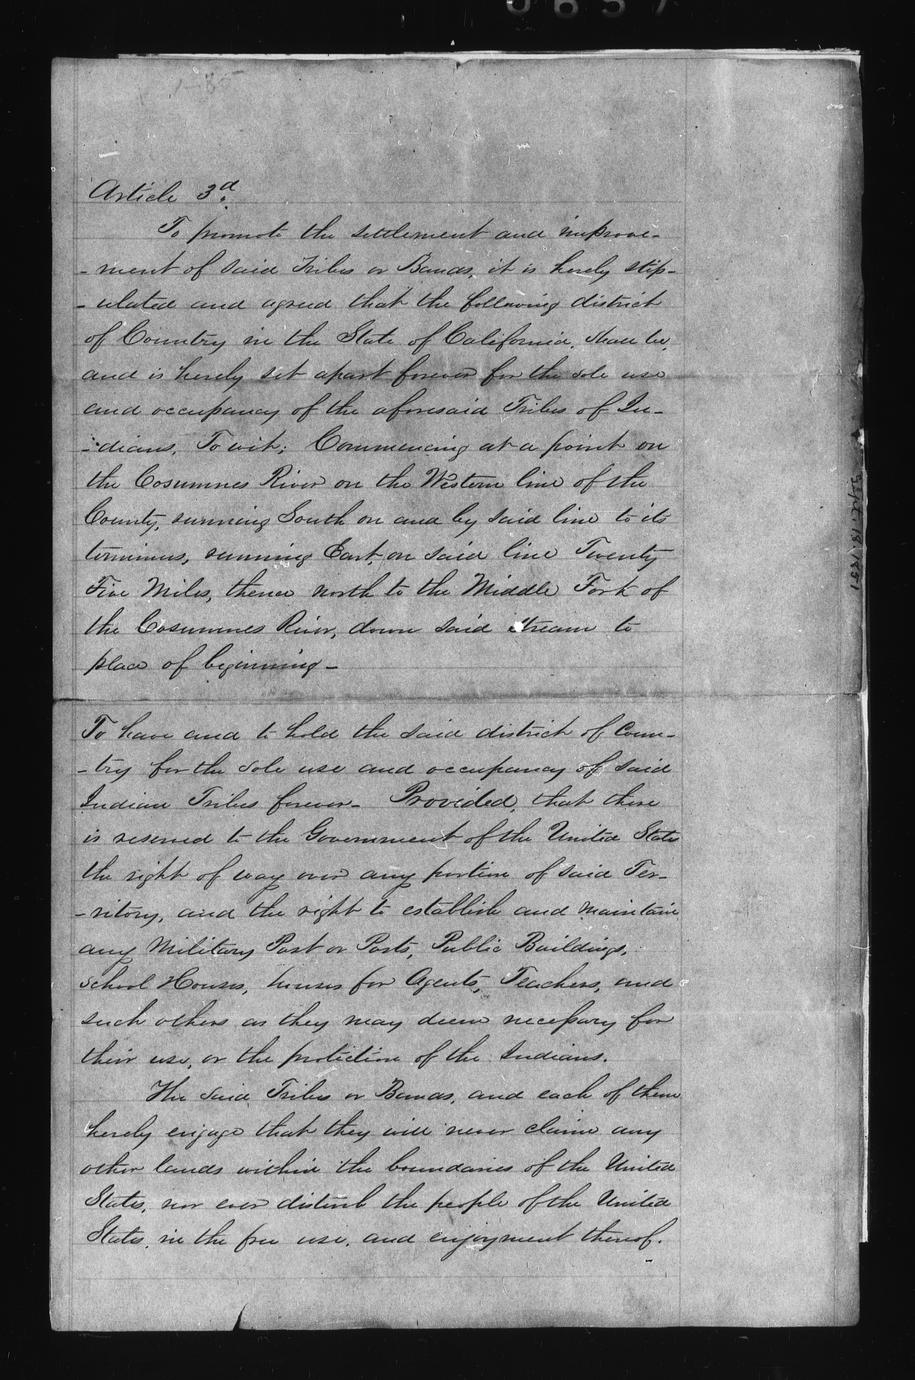 Article 3d.
To promote the settlement and improve-
-ment of said Tribes or Bands, it is hereby stip-
-ulated and agreed that the following district
of Country in the State of California, shall be,
and is hereby set apart forever for the sole use
and occupancy of the aforesaid Tribes of In-
-dians, To wit; Commencing at a point on
the Cosumnes River on the Western line of the
County, running South on and by said line to its
terminus, running East, on said line Twenty
Five Miles, thence north to the Middle Fork of
the Cosumnes River, down said stream to
place of beginning-
To have and to hold the said district of Coun-
-try for the sole use and occupancy of said
Indian Tribes forever- Provided, that there
is reserved to the Government of the United States
the right of way over any portion of said Ter-
-ritory, and the right to establish and maintain
any Military Post or Posts, Public Buildings,
School Houses, houses for Agents, Teachers, and
such others as they may deem necessary for
their use, or the protection of the Indians.
The said Tribes or Bands, and each of them
hereby engage that they will never claim any
other lands within the boundaries of the United
States, nor ever disturb the people of the United
States, in the free use, and enjoyment thereof.
Sept. 18, 1851